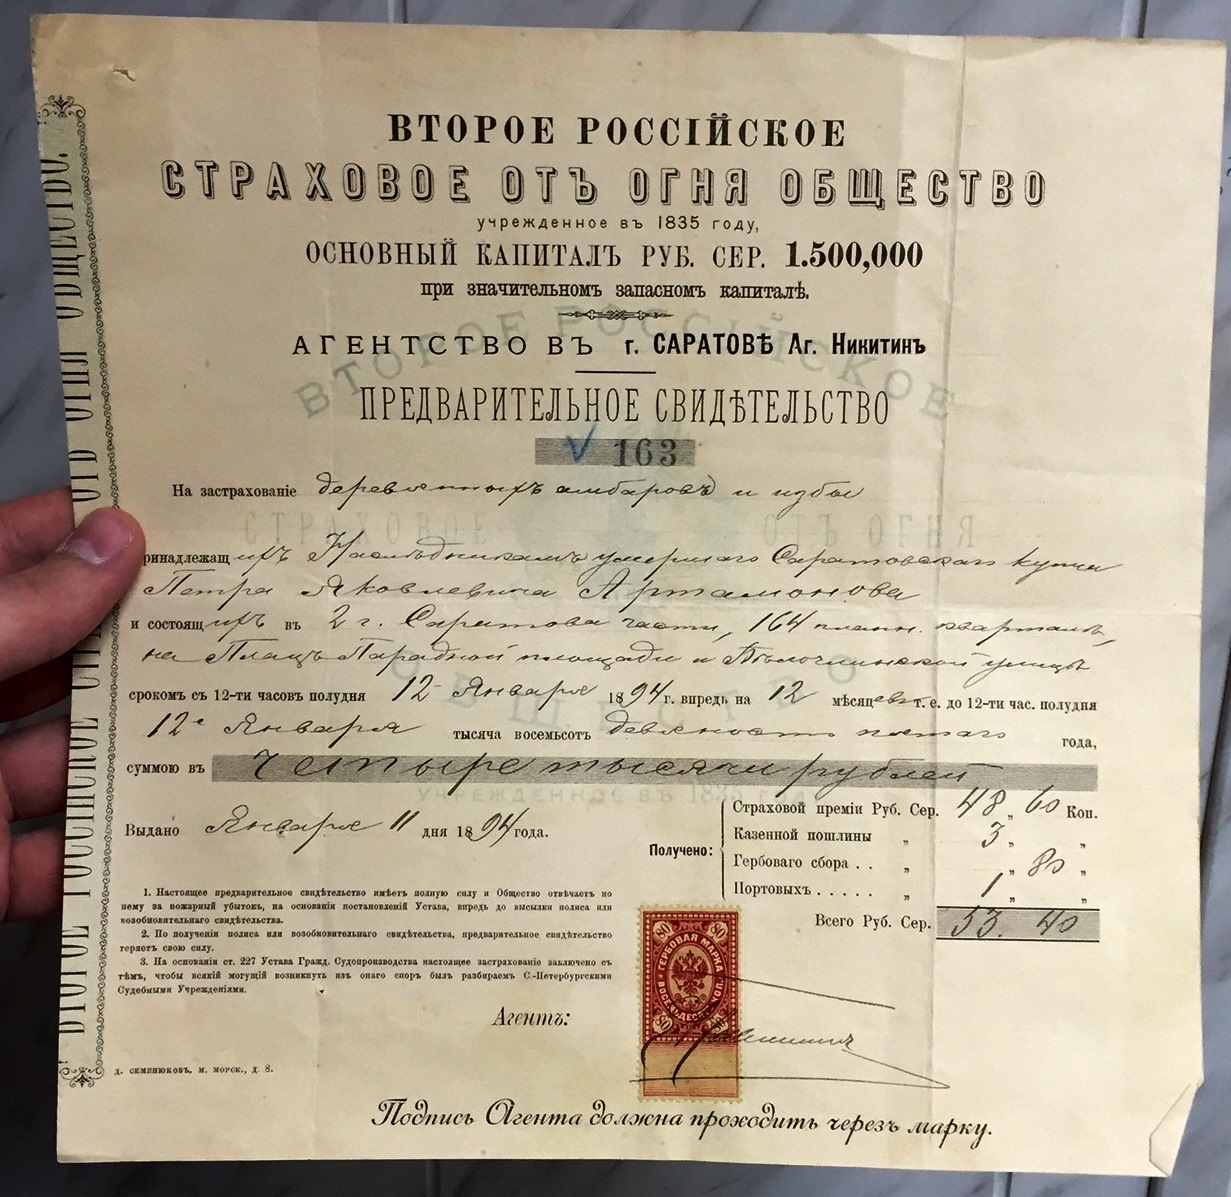 ВТОРОЕ РОССІЙСКОЕ
СТРАХОВОЕ ОТЪ ОГНЯ ОБЩЕСТВО
учрежденное въ 1835 году,
ОСНОВНЫЙ КАПИТАЛЪ РУБ. СЕР. 1.500,000
при значительномъ запасномъ капиталѣ.
АГЕНТСТВО ВЪ г. САРАТОВѢ Аг. Никитинъ
ПРЕДВАРИТЕЛЬНОЕ СВИДѢТЕЛЬСТВО
163
На застрахованіе деревянныхъ амбаровъ и избы
ринадлежащихъ Наслѣдникамъ умершаго Саратовскаго купца
Петра Яковлевича Артамонова
и состоящихъ въ 2 г. Саратова части, 164 планн. кварталѣ,
на Плацъ Парадной площади и Бѣлоглинской улицѣ
срокомъ съ 12-ти часовъ полудня 12 Января 1894 г. впредь на 12 мѣсяцевъ т. е. до 12-ти час. полудня
12е Января тысяча восемьсотъ девяносто пятаго года,
суммою въ Четыре тысячи рублей
Выдано Января 11 дня 1894 года.
Получено:
Страховой преміи Руб. Сер. 48 „ 60 Коп.
Казенной пошлины „ 3 „ „
Гербоваго сбора . . „ „ 80 „
Портовыхъ . . . . . „ 1 „ „
Всего Руб. Сер. 53. 40
1. Настоящее предварительное свидѣтельство имѣетъ полную силу и Общество отвѣчаетъ по
нему за пожарный убытокъ, на основаніи постановленій Устава, впредь до высылки полиса или
возобновительнаго свидѣтельства.
2. По полученіи полиса или возобновительнаго свидѣтельства, предварительное свидѣтельство
теряетъ свою силу.
3. На основаніи ст. 227 Устава Гражд. Судопроизводства настоящее застрахованіе заключено съ
тѣмъ, чтобы всякій могущій возникнуть изъ онаго споръ былъ разбираемъ С.-Петербургскими
Судебными Учрежденіями.
Агентъ:
80 80
ГЕРБОВАЯ МАРКА
ВОСЕМЬДЕСЯТЪ КОП.
80 80
Д. СЕМЕНЮКОВЪ, М. МОРСК., Д. 8.
Подпись Агента должна проходить черезъ марку.
ВТОРОЕ РОССІЙСКОЕ СТРАХОВОЕ ОТЪ ОГНЯ ОБЩЕСТВО.
ВТОРОЕ РОССІЙСКОЕ
СТРАХОВОЕ ОТЪ ОГНЯ
ОБЩЕСТВО
УЧРЕЖДЕННОЕ ВЪ 1835 ГОДУ